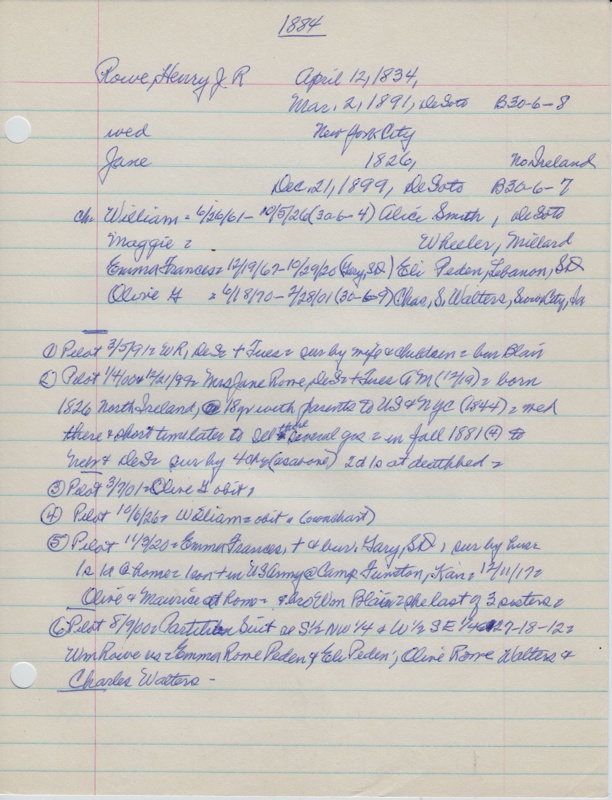 1884
Rowe, Henry J R April 12, 1834,
Mar. 2, 1891, DeSoto B30-6-8
wed New York City
Jane 1826, No. Ireland
Dec. 21, 1899, DeSoto B30-6-7
ch. William = 6/26/61 - 10/5/26 (30-6-4) Alice Smith, DeSoto
Maggie = Wheeler, Millard
Emma Frances = 12/19/67 - 10/29/20 (Gary, SD) Eli Peden, Lebanon, SD
Olive G = 6/18/70 - 2/28/01 (30-6-9) Chas. S. Walters, Sioux City, Ia
① Pilot 3/5/91 = WR, DeS = + Tues = sur by wife & children = bur Blair
② Pilot 1/4/00 & 12/21/99 = Mrs Jane Rowe, DeS = + Tues A M (12/19) = born
1826 North Ireland, @ 18 yr with parents to US & NYC (1844) = wed
there & short time later to Ill there several yrs = in fall 1881 (4) to
Neb & DeS = sur by 4 ch = (as above) 2 d 1 s at deathbed =
③ Pilot 3/7/01 = Olive G obit =
④ Pilot 10/6/26 = William = obit = (own chart)
⑤ Pilot 11/3/20 = Emma Frances, + & bur. Gary, SD, sur by hus =
1 s 1 d @ home = 1 son + in US Army @ Camp Funston, Kan = 12/11/17 =
Olive & Maurice at home = & bro Wm Blair = she last of 3 sisters =
⑥ Pilot 8/9/00 = Partition Suit re S½ NW¼ & W½ SE¼ 27-18-12 =
Wm Rowe vs = Emma Rowe Peden & Eli Peden; Olive Rowe Walters &
Charles Walters -